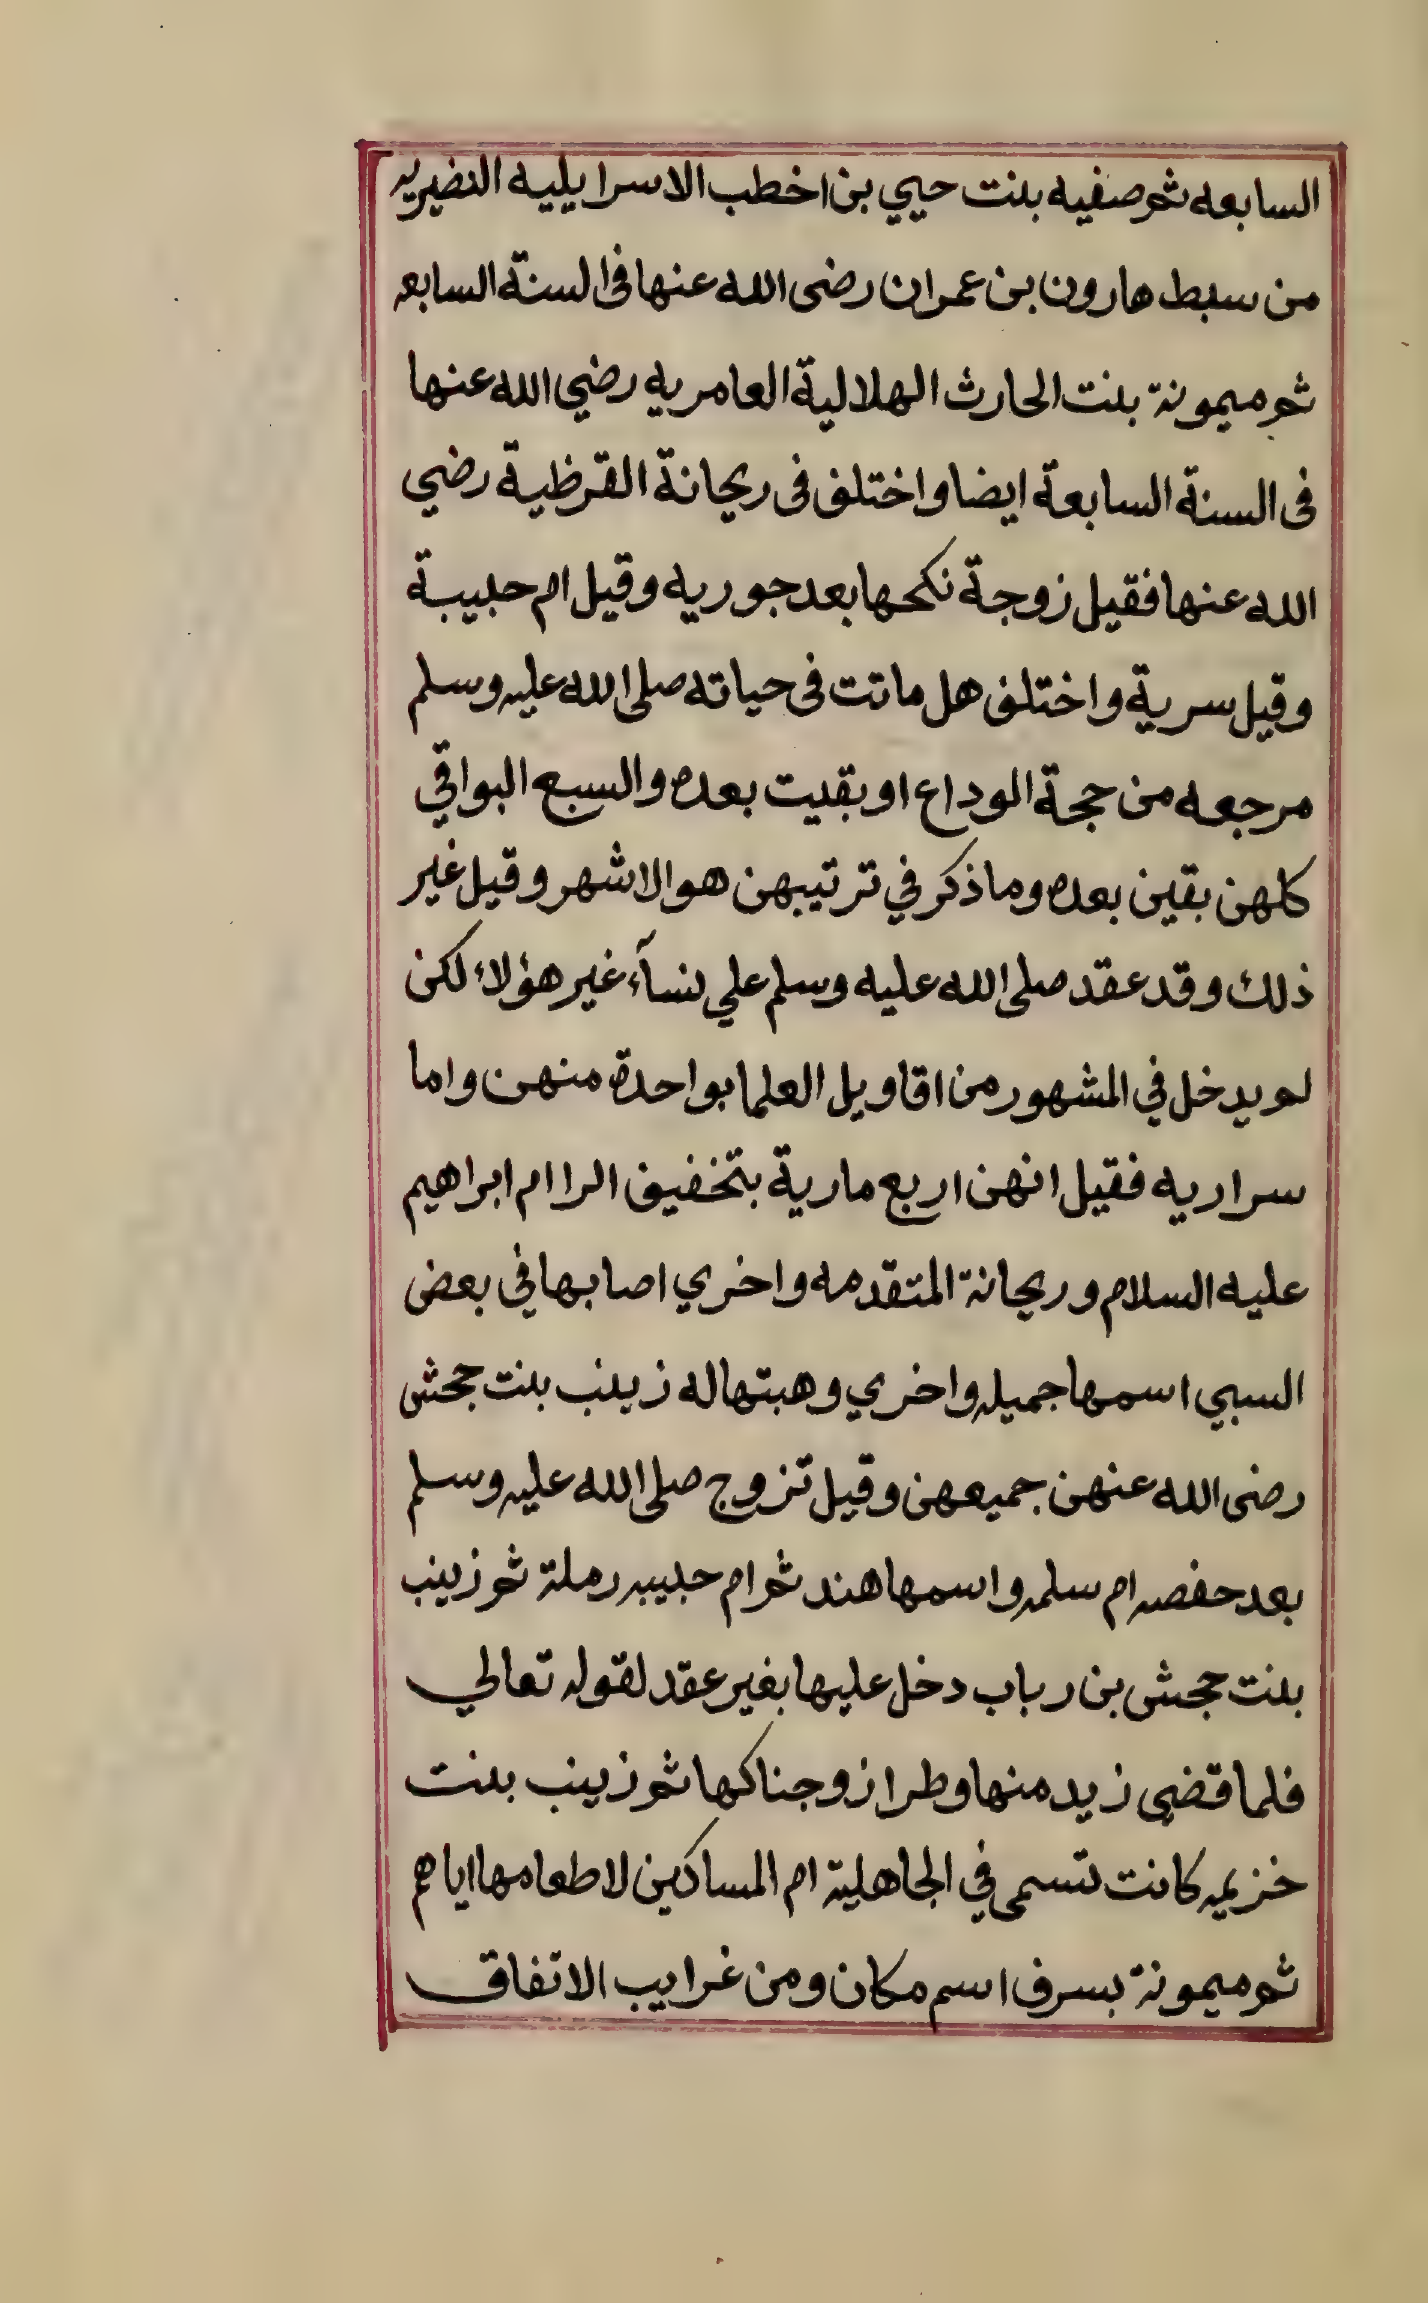 السابعه ثم صفيه بنت حيي بن اخطب الاسرايليه النضيريه
من سبط هارون بن عمران رضى الله عنها فى السنة السابعه
ثم ميمونة بنت الحارث الهلالية العامريه رضي الله عنها
فى السنة السابعة ايضا واختلف فى ريحانة القرظية رضي
الله عنها فقيل زوجة نكحها بعد جوريه وقيل ام حبيبة
وقيل سرية واختلف هل ماتت فى حياته صلى الله عليه وسلم
مرجعه من حجة الوداع او بقيت بعده والسبع البواقي
كلهن بقين بعده وما ذكر في ترتيبهن هو الاشهر وقيل غير
ذلك وقد عقد صلى الله عليه وسلم علي نسآء غير هؤلاء لكن
لم يدخل في المشهور من اقاويل العلما بواحدة منهن واما
سراريه فقيل انهن اربع مارية بتخفيف الرا ام ابراهيم
عليه السلام وريحانة المتقدمه واخري اصابها في بعض
السبي اسمها جميله واخري وهبتها له زينب بنت جحش
رضى الله عنهن جميعهن وقيل تزوج صلى الله عليه وسلم
بعد حفصه ام سلمه واسمها هند ثم ام حبيبه رملة ثم زينب
بنت جحش بن رباب دخل عليها بغير عقد لقوله تعالي
فلما قضي زيد منها وطرا زوجناكها ثم زينب بنت
خزيمه كانت تسمى في الجاهلية ام المساكين لاطعامها اياهم
ثم ميمونة بسرف اسم مكان ومن غرايب الاتفاق